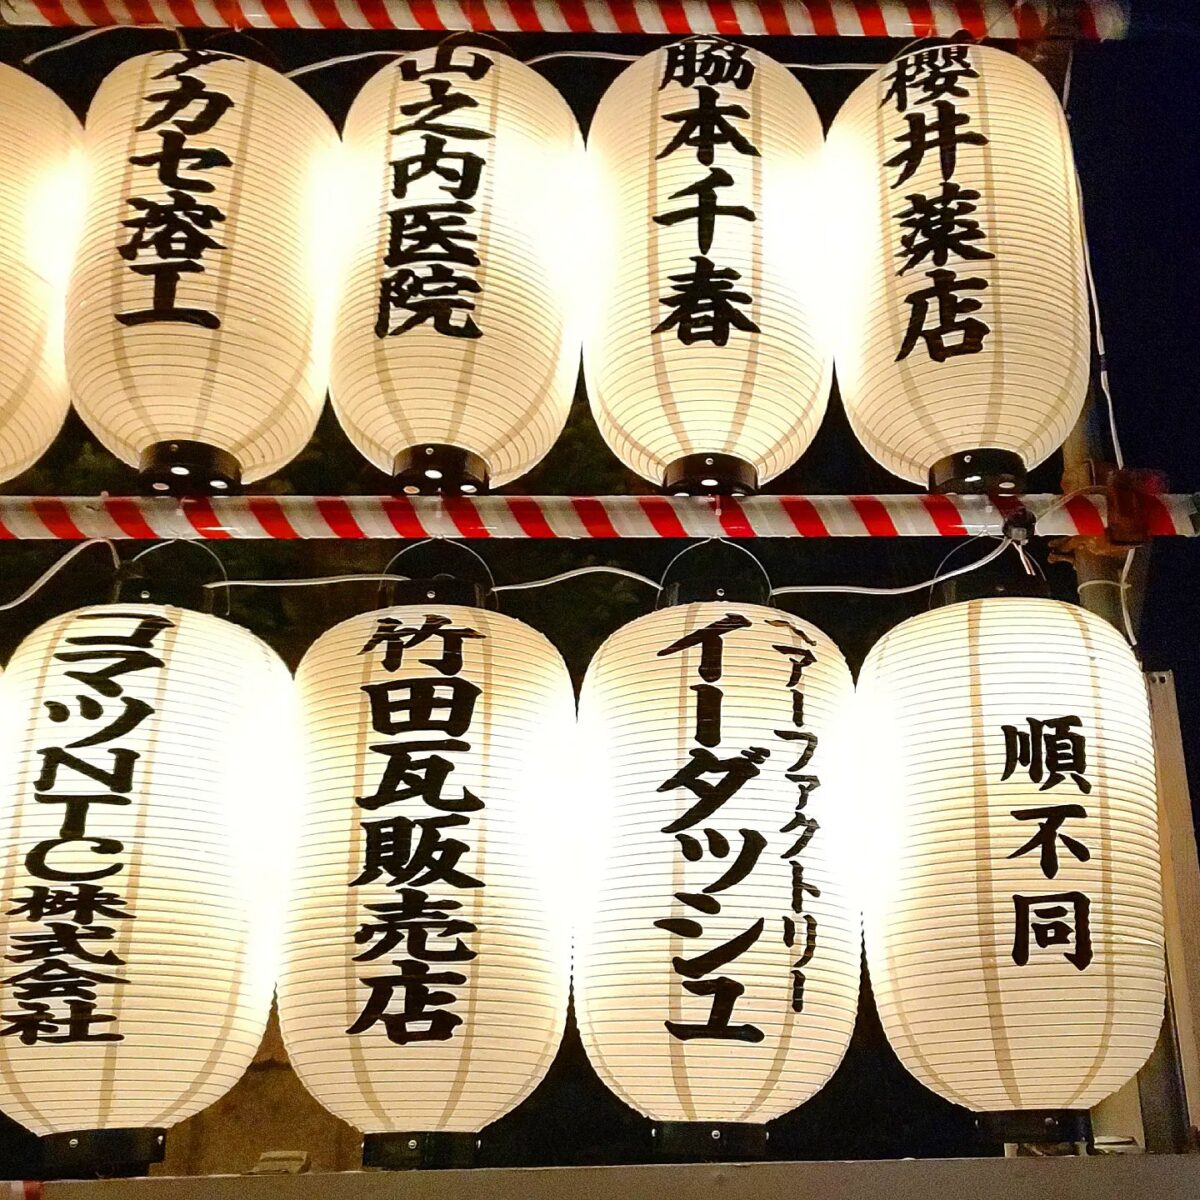 櫻井薬店
脇本千春
山之内医院
タカセ溶工
順不同
ヘアーファクトリー
イーダッシュ
竹田瓦販売店
コマツNTC株式会社